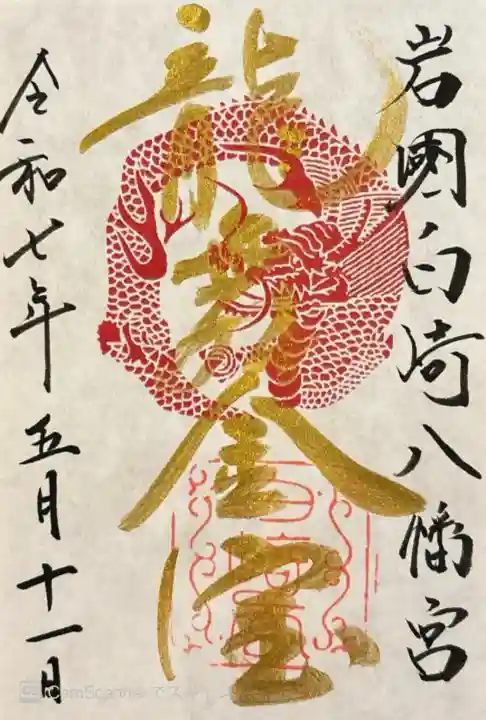 岩國白崎八幡宮
龍発金宝
令和七年五月十一日
CamScannerでスキャン